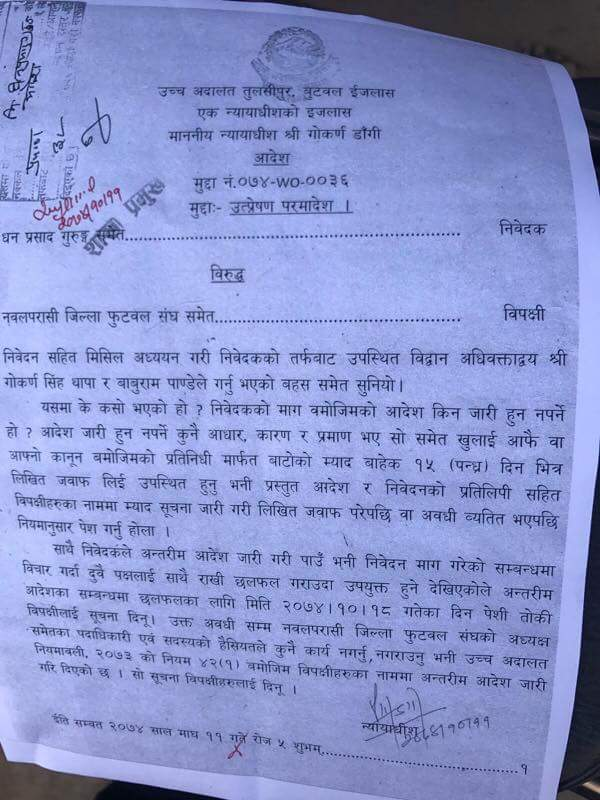 उच्च अदालत तुलसीपुर, बुटवल ईजलास
एक न्यायाधीशको इजलास
माननीय न्यायाधीश श्री गोकर्ण डाँगी
आदेश
मुद्दा नं.०७४-WO-००३६
मुद्दाः- उत्प्रेषण परमादेश ।
शाखा प्रमुख
धन प्रसाद गुरुङ्ग समेत.................................................... निवेदक
विरुद्ध
नवलपरासी जिल्ला फुटवल संघ समेत........................................ विपक्षी
निवेदन सहित मिसिल अध्ययन गरी निवेदकको तर्फबाट उपस्थित विद्वान अधिवक्ताद्वय श्री
गोकर्ण सिंह थापा र बाबुराम पाण्डेले गर्नु भएको बहस समेत सुनियो ।
यसमा के कसो भएको हो ? निवेदकको माग वमोजिमको आदेश किन जारी हुन नपर्ने
हो ? आदेश जारी हुन नपर्ने कुनै आधार, कारण र प्रमाण भए सो समेत खुलाई आफै वा
आफ्नो कानून बमोजिमको प्रतिनिधी मार्फत बाटोको म्याद बाहेक १५ (पन्ध्र) दिन भित्र
लिखित जवाफ लिई उपस्थित हुनु भनी प्रस्तुत आदेश र निवेदनको प्रतिलिपी सहित
विपक्षीहरुका नाममा म्याद सूचना जारी गरी लिखित जवाफ परेपछि वा अवधी व्यतित भएपछि
नियमानुसार पेश गर्नु होला ।
साथै निवेदकले अन्तरीम आदेश जारी गरी पाउँ भनी निवेदन माग गरेको सम्बन्धमा
विचार गर्दा दुवै पक्षलाई साथै राखी छलफल गराउदा उपयुक्त हुने देखिएकोले अन्तरीम
आदेशका सम्बन्धमा छलफलका लागि मिति २०७४।१०।१८ गतेका दिन पेशी तोकी
विपक्षीलाई सूचना दिनू। उक्त अवधी सम्म नवलपरासी जिल्ला फुटवल संघको अध्यक्ष
समेतका पदाधिकारी एवं सदस्यको हैसियतले कुनै कार्य नगर्नु,नगराउनु भनी उच्च अदालत
नियमावली, २०७३ को नियम ४२(१) वमोजिम विपक्षीहरुका नाममा अन्तरीम आदेश जारी
गरि दिएको छ । सो सूचना विपक्षीहरुलाई दिनू ।
न्यायाधीश
ईति सम्बत २०७४ साल माघ ११ गते रोज ५ शुभम्..................................................
१